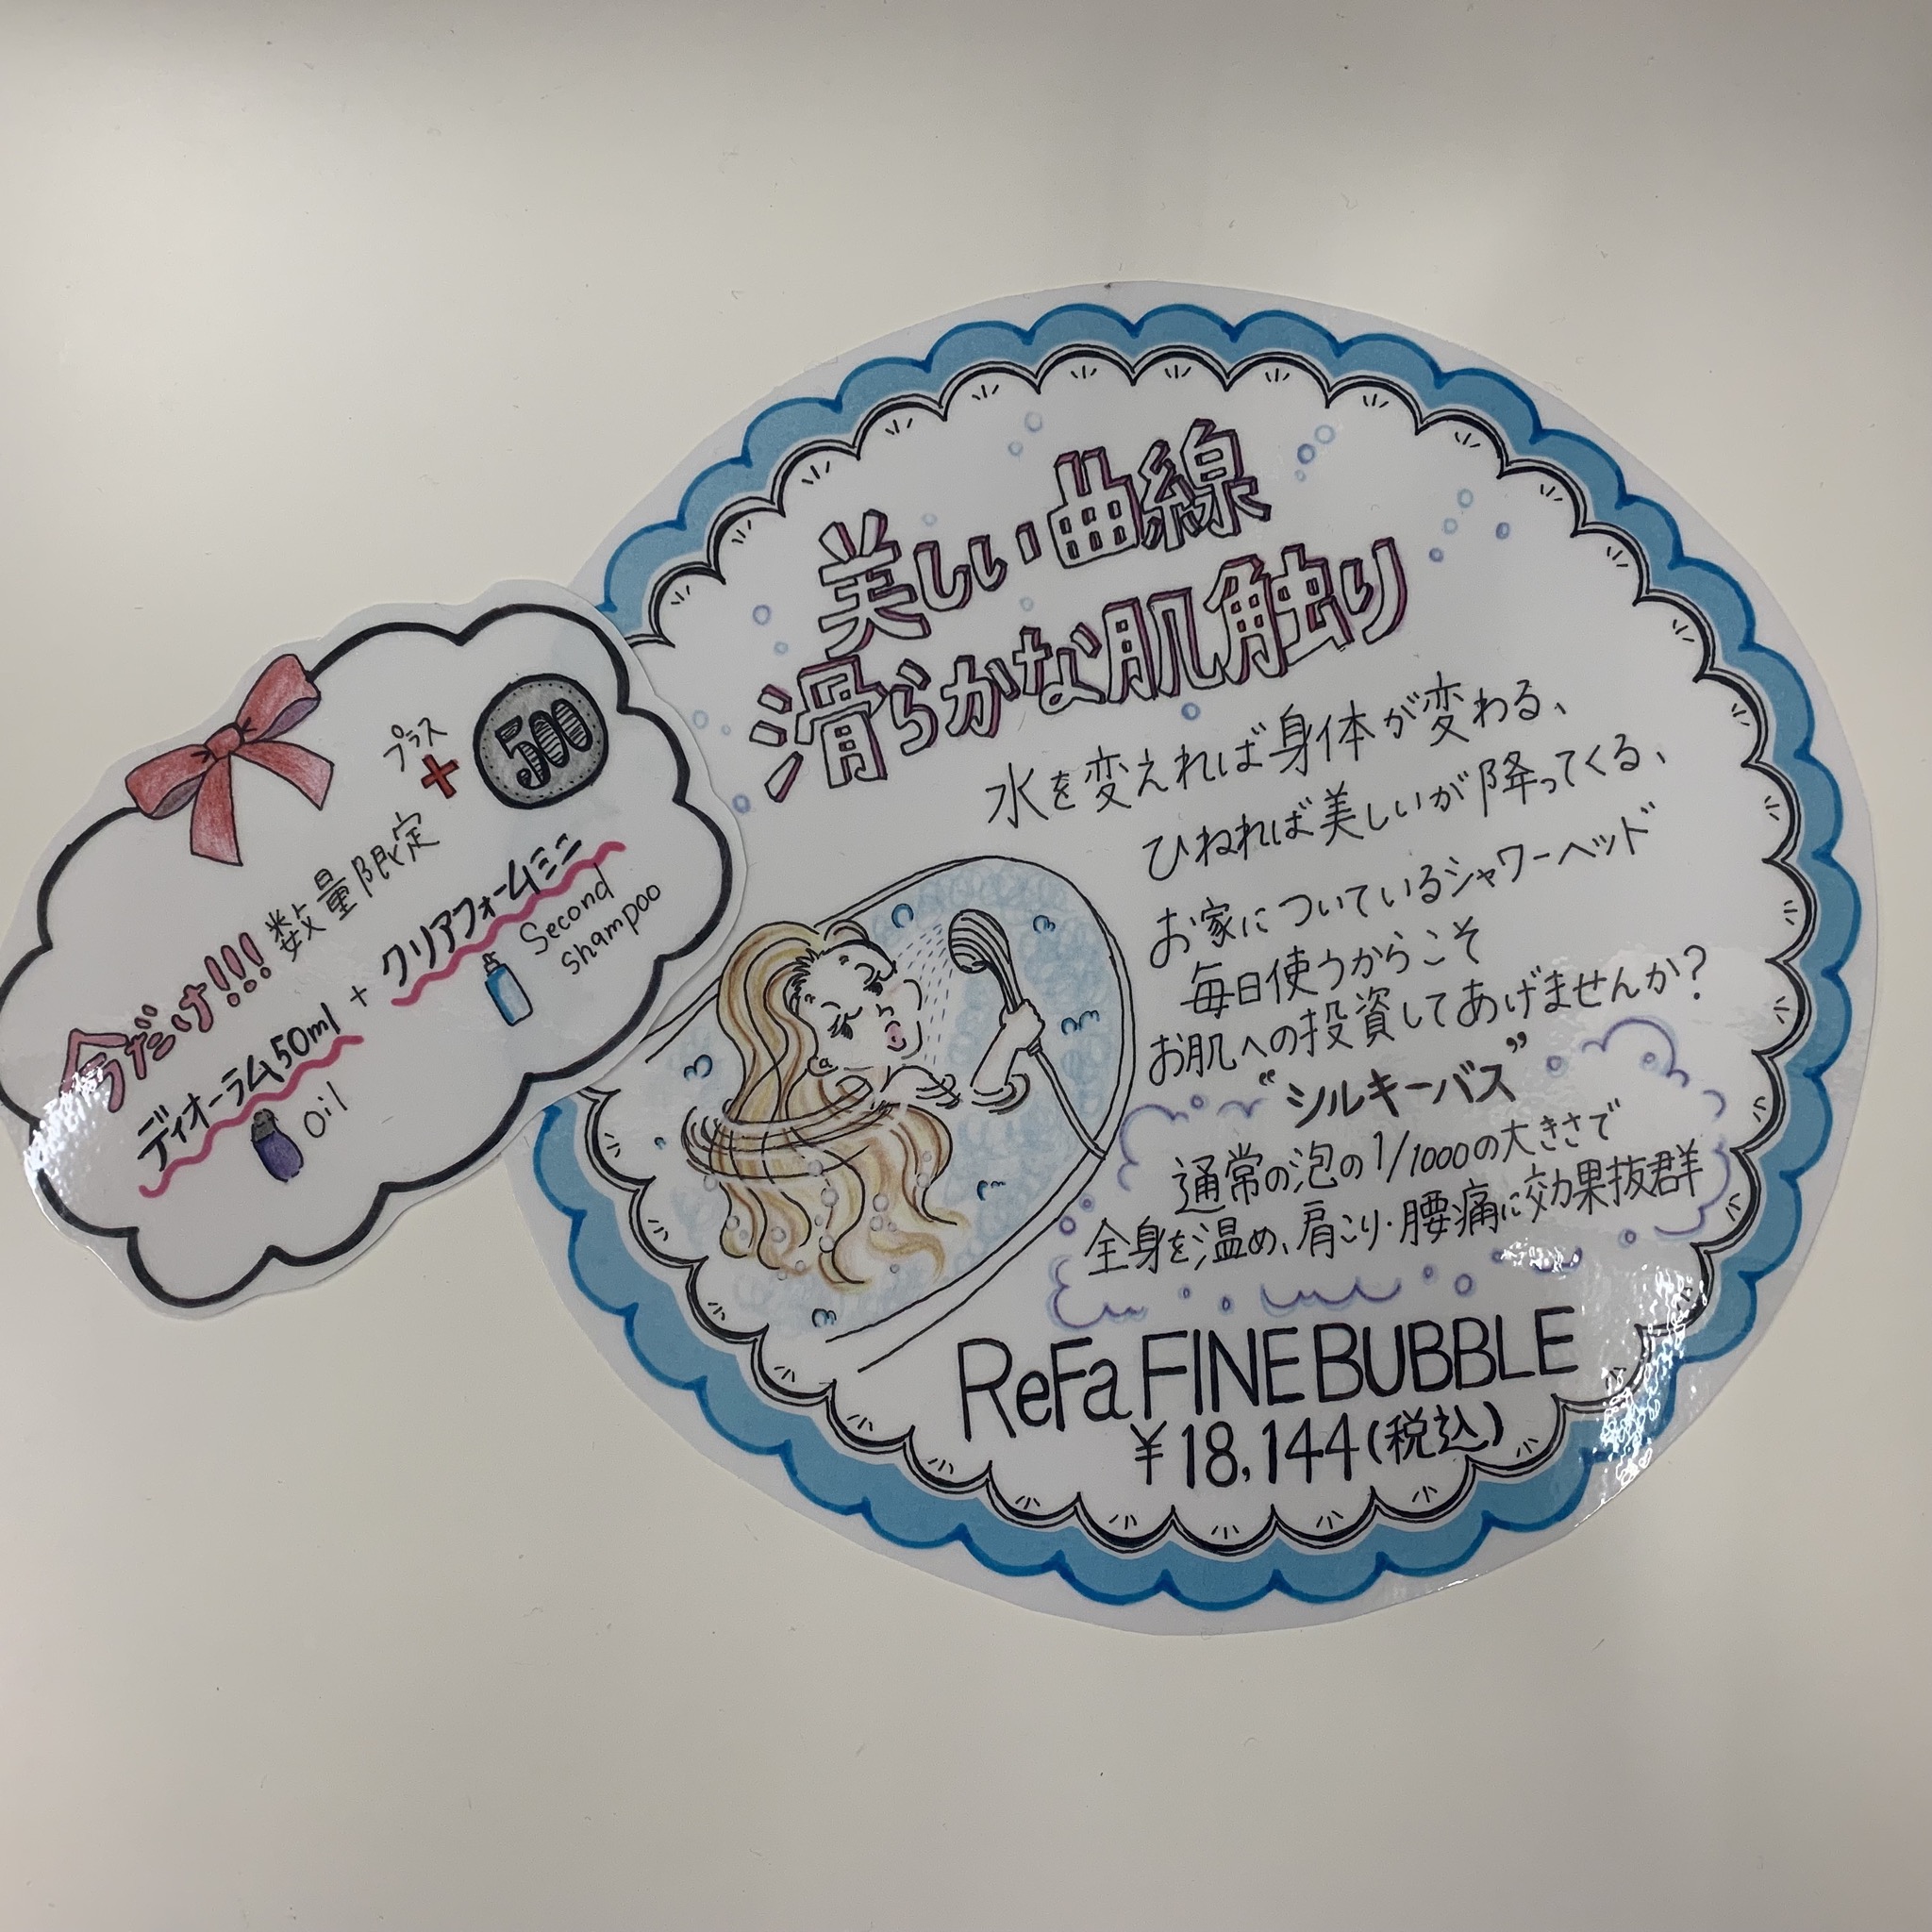 美しい曲線
滑らかな肌触り
水を変えれば身体が変わる、
ひねれば美しいが降ってくる、
お家についているシャワーヘッド
毎日使うからこそ
お肌への投資してあげませんか?
“シルキーバス”
通常の泡の1/1000の大きさで
全身を温め、肩こり・腰痛に効果抜群
ReFa FINE BUBBLE
¥18,144(税込)
プラス
+ 500
今だけ!!! 数量限定
ディオーラム50ml + クリアフォームミニ
Oil
Second
Shampoo